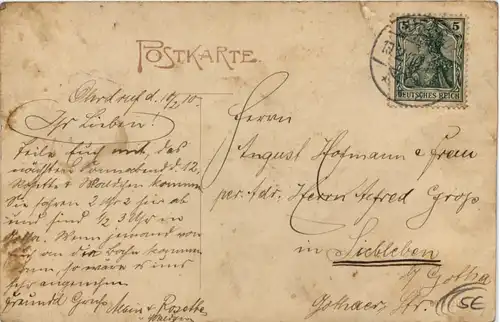 POSTKARTE
5 5
DEUTSCHES REICH
Ohrdruf d. 10/2 10.
Ihr Lieben!
Teile Euch mit, das
nächsten Sonnabend d. 12.
Rosette & Waldchen kommen
Sie fahren 2 Uhr 2 hier ab
und sind ½ 3 Uhr in
Gotha. Wenn jemand von
Euch an die Bahn kommen
kann, so wäre es uns
sehr angenehm
Freundl Gruß
Rosette
Herrn
August Hofmann & Frau
per. Adr. Herrn Alfred Groß
in Siebleben
b/ Gotha
Gothaer Str.
SE